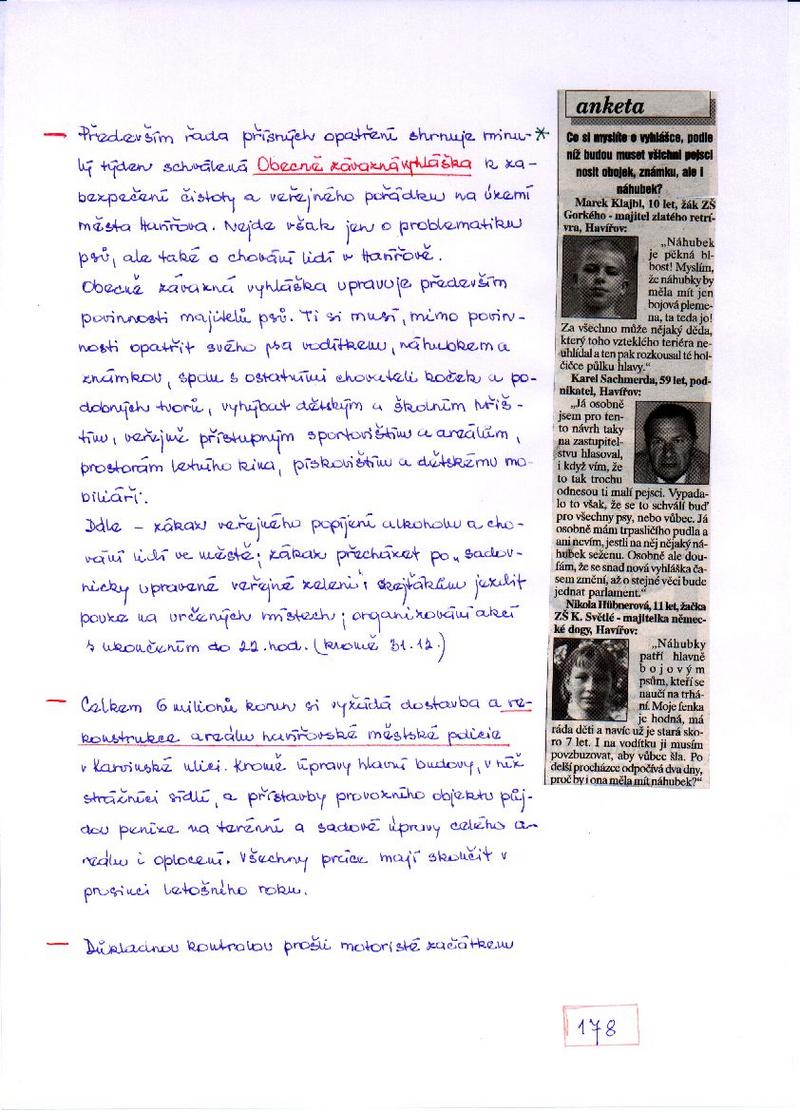 — Především řada přísných opatření shrnuje minu-*
lý týden schválená Obecně závazná vyhláška k za-
bezpečení čistoty a veřejného pořádku na území
města Havířova. Nejde však jen o problematiku
psů, ale také o chování lidí v Havířově.
Obecně závazná vyhláška upravuje především
povinnosti majitelů psů. Ti si musí, mimo povin-
nosti opatřit svého psa vodítkem, náhubkem a
známkou, spolu s ostatními chovateli koček a po-
dobných tvorů, vyhýbat dětským a školním hřiš-
tím, veřejně přístupným sportovištím a areálům,
prostorám letního kina, pískovištím a dětskému mo-
biliáři.
Dále – zákaz veřejného popíjení alkoholu a cho-
vání lidí ve městě; zákaz přecházet po „sadov-
nicky upravené veřejné zeleni; skejťákům jezdit
pouze na určených místech; organizování akcí
s ukončením do 22.hod. (kromě 31.12.)
— Celkem 6 milionů korun si vyžádá dostavba a re-
konstrukce areálu havířovské městské policie
v Karvinské ulici. Kromě úpravy hlavní budovy, v níž
strážníci sídlí, a přístavby provozního objektu půj-
dou peníze na terénní a sadové úpravy celého a-
reálu i oplocení. Všechny práce mají skončit v
prosinci letošního roku.
— Důkladnou kontrolou prošli motoristé začátkem
anketa
Co si myslíte o vyhlášce, podle
níž budou muset všichni pejsci
nosit obojek, známku, ale i
náhubek?
Marek Klajbl, 10 let, žák ZŠ
Gorkého - majitel zlatého retrí-
vra, Havířov:
„Náhubek
je pěkná bl-
bost! Myslím,
že náhubky by
měla mít jen
bojová pleme-
na, ta teda jo!
Za všechno může nějaký děda,
který toho vzteklého teriéra ne-
uhlídal a ten pak rozkousal té hol-
čičce půlku hlavy.“
Karel Sachmerda, 59 let, pod-
nikatel, Havířov:
„Já osobně
jsem pro ten-
to návrh taky
na zastupitel-
stvu hlasoval,
i když vím, že
to tak trochu
odnesou ti malí pejsci. Vypada-
lo to však, že se to schválí buď
pro všechny psy, nebo vůbec. Já
osobně mám trpasličího pudla a
ani nevím, jestli na něj nějaký ná-
hubek seženu. Osobně ale dou-
fám, že se snad nová vyhláška ča-
sem změní, až o stejné věci bude
jednat parlament.“
Nikola Hübnerová, 11 let, žačka
ZŠ K. Světlé - majitelka němec-
ké dogy, Havířov:
„Náhubky
patří hlavně
bojovým
psům, kteří se
naučí na trhá-
ní. Moje fenka
je hodná, má
ráda děti a navíc už je stará sko-
ro 7 let. I na vodítku ji musím
povzbuzovat, aby vůbec šla. Po
delší procházce odpočívá dva dny,
proč by i ona měla mít náhubek?“
178